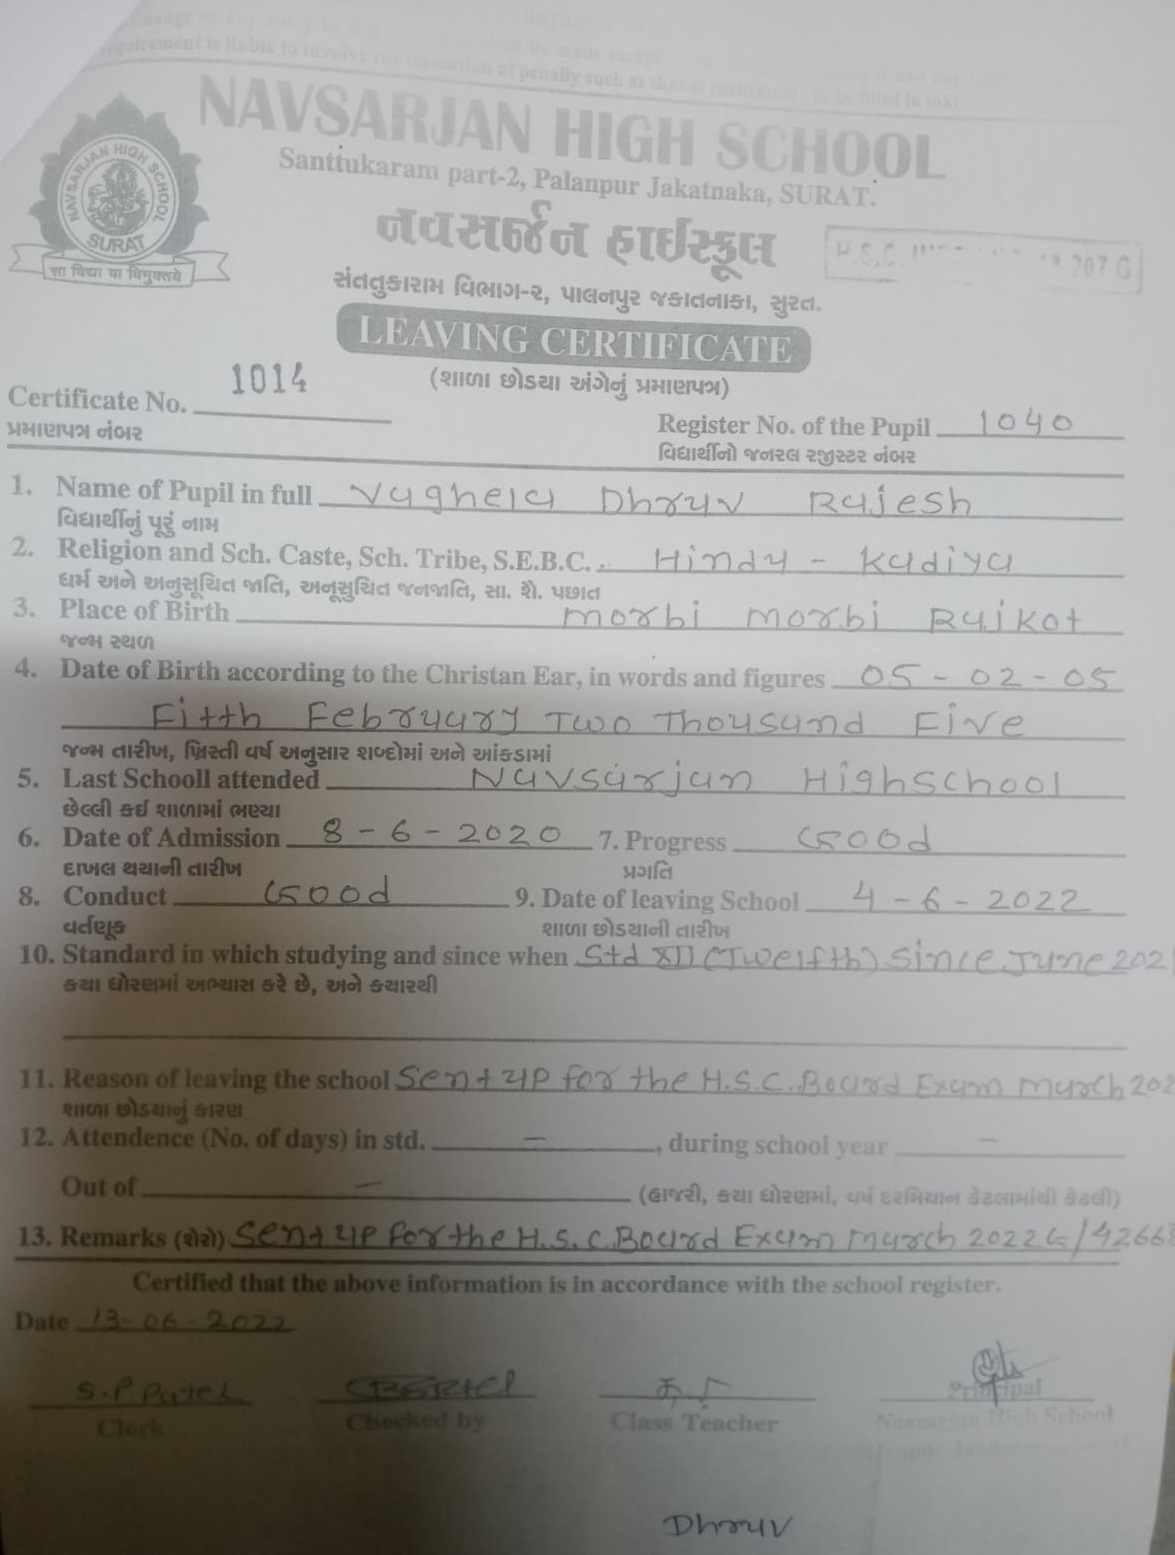 requirement is liable to involve the imposition of penally such as that of rustication (to be filled in ink)
NAVSARJAN HIGH SCHOOL
Santtukaram part-2, Palanpur Jakatnaka, SURAT.
NAVSARJAN HIGH SCHOOL
SURAT
सा विद्या या विमुक्तये
નવસર્જન હાઈસ્કૂલ
H.S.C. 207 G
સંતતુકારામ વિભાગ-૨, પાલનપુર જકાતનાકા, સુરત.
LEAVING CERTIFICATE
(શાળા છોડયા અંગેનું પ્રમાણપત્ર)
Certificate No. 1014
પ્રમાણપત્ર નંબર
Register No. of the Pupil 1040
વિદ્યાર્થીનો જનરલ રજીસ્ટર નંબર
1. Name of Pupil in full Vaghela Dhruv Rajesh
વિદ્યાર્થીનું પૂરું નામ
2. Religion and Sch. Caste, Sch. Tribe, S.E.B.C. . Hindu - Kadiya
ધર્મ અને અનુસૂચિત જાતિ, અનૂસુચિત જનજાતિ, સા. શૈ. પછાત
3. Place of Birth morbi morbi Rajkot
જન્મ સ્થળ
4. Date of Birth according to the Christan Ear, in words and figures 05 - 02 - 05
Fifth February Two Thousand Five
જન્મ તારીખ, ખ્રિસ્તી વર્ષ અનુસાર શબ્દોમાં અને આંકડામાં
5. Last Schooll attended Navsarjan Highschool
છેલ્લી કઈ શાળામાં ભણ્યા
6. Date of Admission 8 - 6 - 2020 7. Progress Good
દાખલ થયાની તારીખ પ્રગતિ
8. Conduct Good 9. Date of leaving School 4 - 6 - 2022
વર્તણૂક શાળા છોડયાની તારીખ
10. Standard in which studying and since when Std XII (Twelfth) Since June 202
કયા ધોરણમાં અભ્યાસ કરે છે, અને કયારથી
11. Reason of leaving the school Sent up for the H.S.C. Board Exam march 202
શાળા છોડયાનું કારણ
12. Attendence (No. of days) in std. - , during school year -
Out of - (હાજરી, કયા ધોરણમાં, વર્ષ દરમિયાન કેટલામાંથી કેટલી)
13. Remarks (શેરો) Sent up for the H.S.C. Board Exam march 2022 G/42668
Certified that the above information is in accordance with the school register.
Date 13-06-2022
S.P. Patel
Clerk Checked by Class Teacher Principal
Navsarjan High School
Dhruv